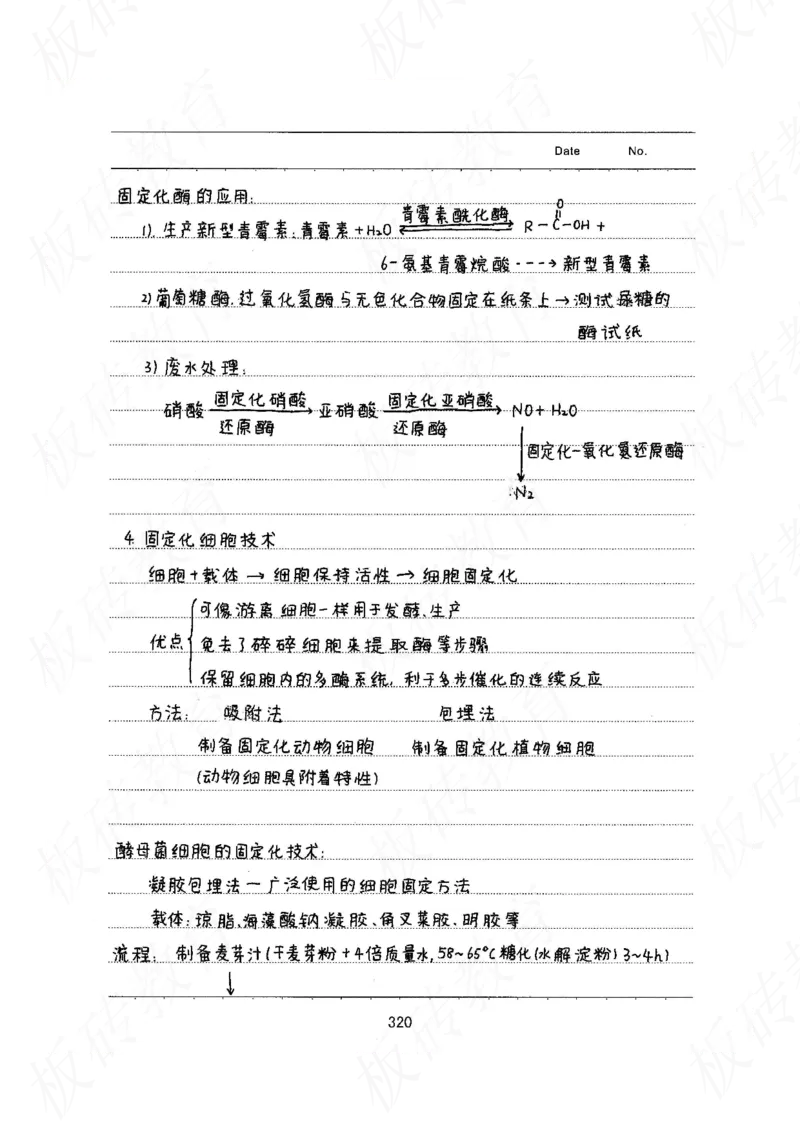 Date No.
固定化酶的应用:
1). 生产新型青霉素: 青霉素 + H₂O 青霉素酰化酶 R-C-OH +
O
6-氨基青霉烷酸 ---→ 新型青霉素
2) 葡萄糖酶、过氧化氢酶与无色化合物固定在纸条上 → 测试尿糖的
酶试纸
3) 废水处理:
硝酸 固定化硝酸 → 亚硝酸 固定化亚硝酸 → NO + H₂O
还原酶 还原酶
↓ 固定化一氧化氮还原酶
N₂
4. 固定化细胞技术
细胞+载体 → 细胞保持活性 → 细胞固定化
可像游离细胞一样用于发酵、生产
优点 免去了碎碎细胞来提取酶等步骤
保留细胞内的多酶系统, 利于多步催化的连续反应
方法: 吸附法 包埋法
制备固定化动物细胞 制备固定化植物细胞
(动物细胞具附着特性)
酵母菌细胞的固定化技术:
凝胶包埋法 — 广泛使用的细胞固定方法
载体: 琼脂、海藻酸钠凝胶、角叉菜胶、明胶等
流程: 制备麦芽汁(干麦芽粉+4倍质量水, 58~65°C 糖化(水解淀粉) 3~4h)
↓
320
板砖教育